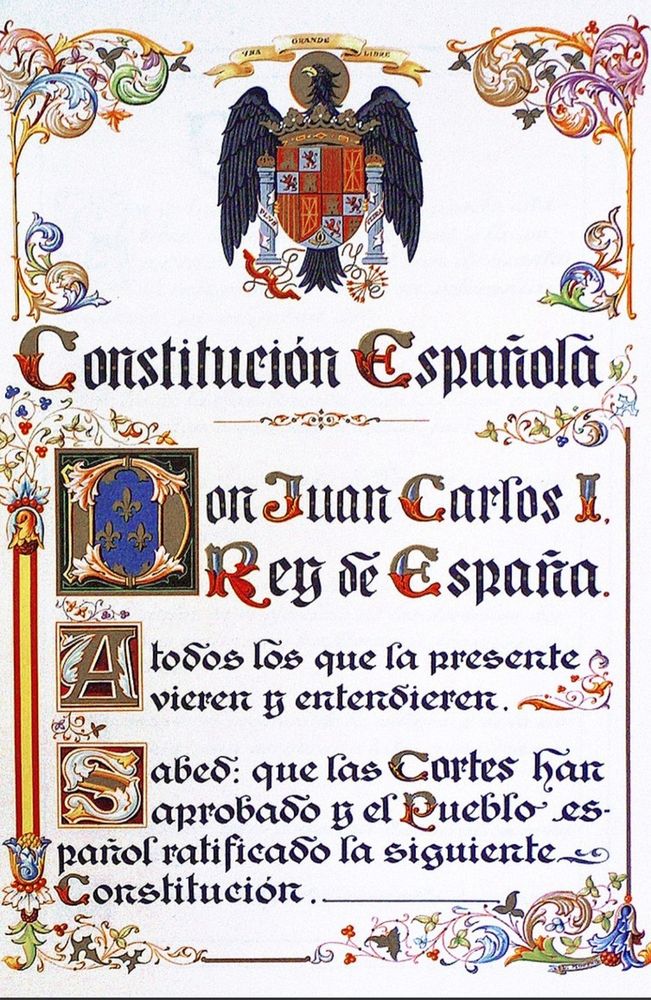 UNA GRANDE LIBRE
PLVS VLTRA
Constitución Española
Don Juan Carlos I,
Rey de España.
A todos los que la presente
vieren y entendieren.
Sabed: que las Cortes han
aprobado y el Pueblo es-
pañol ratificado la siguiente
Constitución.